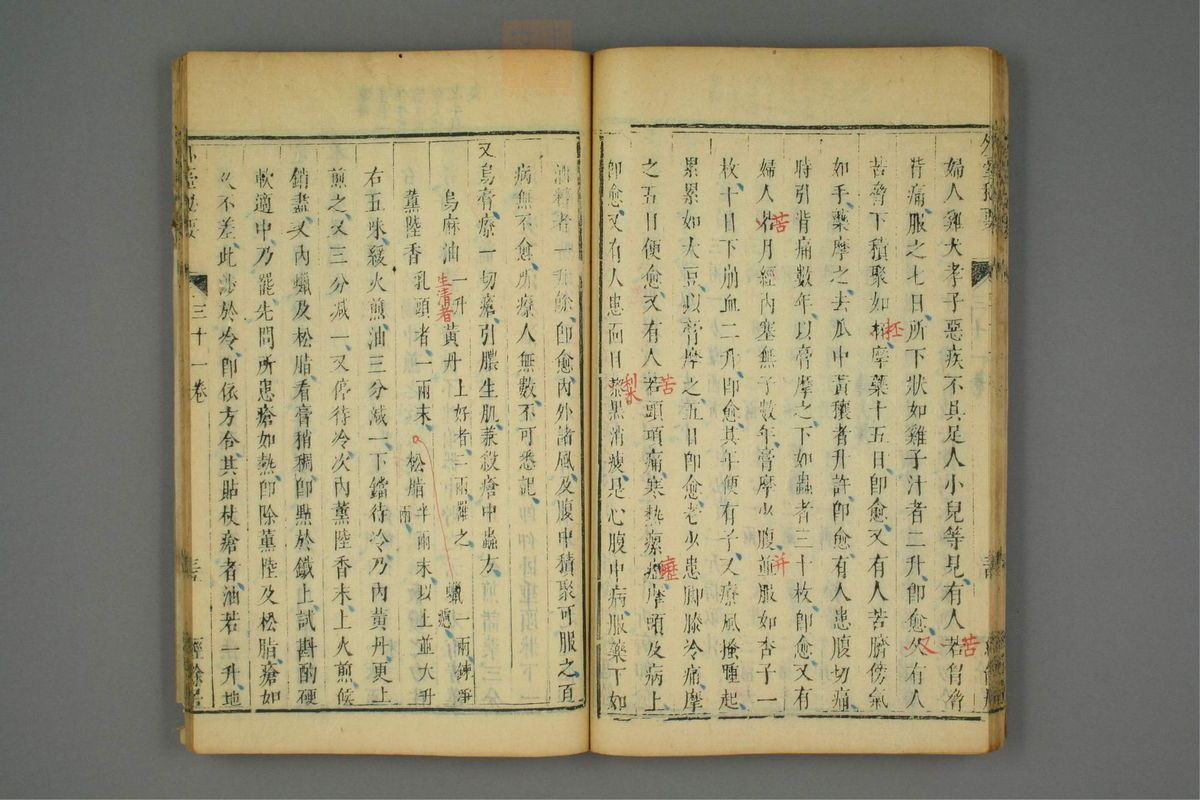 婦人雞犬孝子惡疾不具足人小兒等見有人若胷脅
苦
背痛服之七日所下狀如雞子汁者二升即愈久有人
又
苦脅下積聚如杯摩藥十五日即愈又有人苦臍傍氣
如手藥摩之去瓜中黃穰者升許即愈有人患腹切痛
時引背痛數年以膏摩之下如蟲者三十枚即愈又有
婦人若月經內塞無子數年膏摩少腹並服如杏子一
苦
并
枚十日下崩血二升即愈其年便有子又療風搔腫起
累累如大豆以膏摩之五日即愈老少患腳膝冷痛摩
之五日便愈又有人若頭項痛寒熱瘰癧摩頭及病上
苦
癧
即愈又有人患面目黎黑消瘦是心腹中病服藥下如
油薄者一升餘即愈內外諸風及腹中積聚可服之百
病無不愈所療人無數不可悉記
又烏膏療一切瘡引膿生肌兼殺瘡中蟲方
烏麻油一升 黃丹上好者二兩羅之 蠟一兩鍊淨
生清者
薰陸香乳頭者一兩末 松脂半兩末以上並大升
右五味緩火煎油三分減一下鐺待冷乃內黃丹更上
煎之又三分減一又停待冷次內薰陸香末上火煎候
銷盡又內蠟及松脂看膏稍稠即點於鐵上試斟酌硬
軟適中乃罷先問所患瘡如熱即除薰陸及松脂瘡如
久不差此涉於冷即依方合其貼杖瘡者油若一升地
三十一卷
經餘居